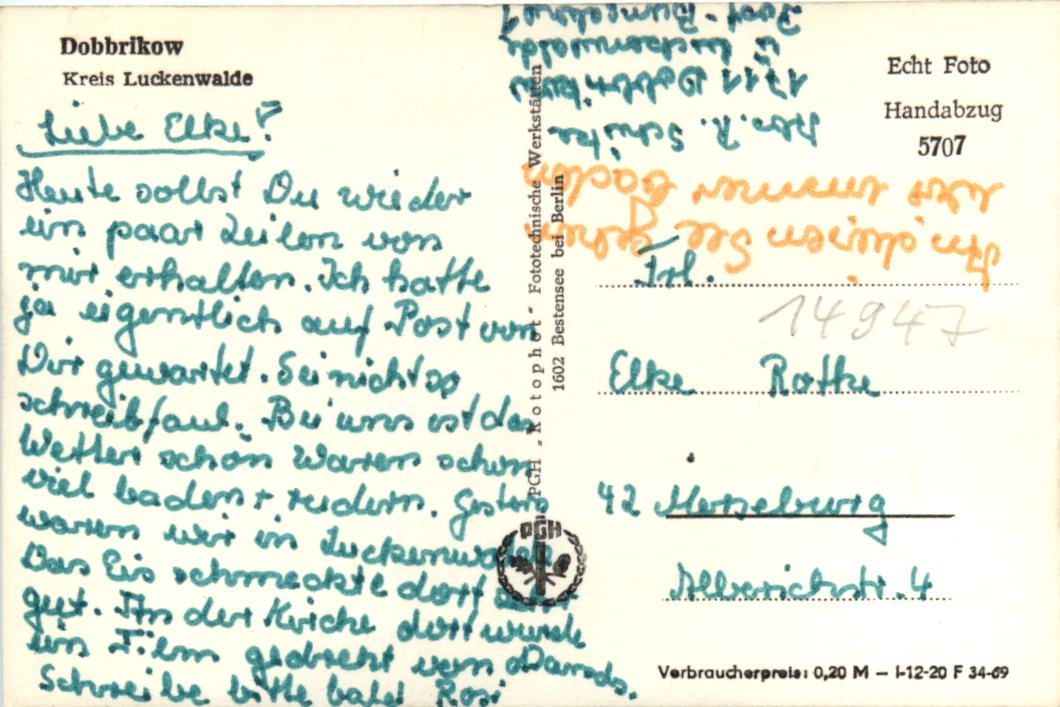 Dobbrikow
Kreis Luckenwalde
Liebe Elke!
Heute sollst Du wieder
ein paar Zeilen von
mir erhalten. Ich hatte
ja eigentlich auf Post von
Dir gewartet. Sei nicht so
schreibfaul. Bei uns ist das
Wetter schön Waren schon
viel baden + rudern. Gestern
waren wir in Luckenwalde
Das Eis schmeckte dort sehr
gut. In der Kirche dort wurde
ein Film gedreht von
Schreibe bitte bald Rosi
Abs. R.
1711 Dobbrikow
ü Luckenwalde
Post-Bungalow 7
In diesen See gehen
wir immer baden
PGH „Rotophot" Fototechnische Werkstätten
1602 Bestensee bei Berlin
PGH
Echt Foto
Handabzug
5707
Frl.
14947
Elke Rothe
42 Merseburg
Alberichstr. 4
Verbraucherpreis: 0,20 M — I-12-20 F 34-69